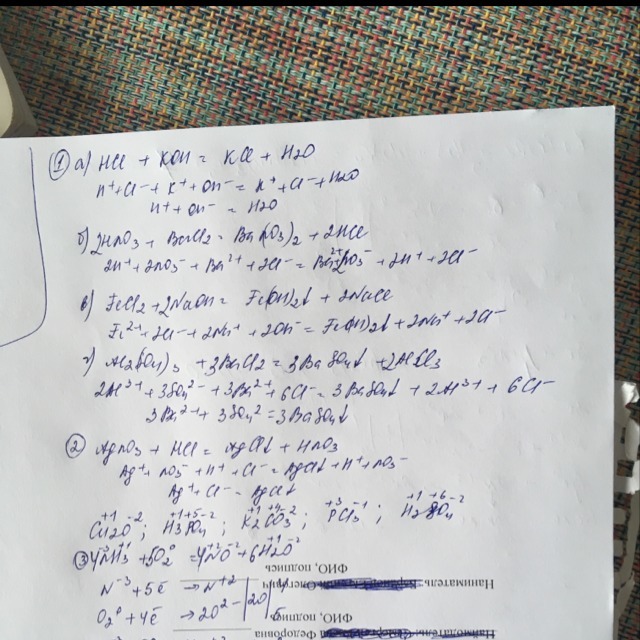 ① а) HCl + KOH = KCl + H2O
H⁺ + Cl⁻ + K⁺ + OH⁻ = K⁺ + Cl⁻ + H2O
H⁺ + OH⁻ = H2O
б) 2HNO3 + BaCl2 = Ba(NO3)2 + 2HCl
2H⁺ + 2NO3⁻ + Ba²⁺ + 2Cl⁻ = Ba²⁺ + 2NO3⁻ + 2H⁺ + 2Cl⁻
в) FeCl2 + 2NaOH = Fe(OH)2↓ + 2NaCl
Fe²⁺ + 2Cl⁻ + 2Na⁺ + 2OH⁻ = Fe(OH)2↓ + 2Na⁺ + 2Cl⁻
г) Al2(SO4)3 + 3BaCl2 = 3BaSO4↓ + 2AlCl3
2Al³⁺ + 3SO4²⁻ + 3Ba²⁺ + 6Cl⁻ = 3BaSO4↓ + 2Al³⁺ + 6Cl⁻
3Ba²⁺ + 3SO4² = 3BaSO4↓
② AgNO3 + HCl = AgCl↓ + HNO3
Ag⁺ + NO3⁻ + H⁺ + Cl⁻ = AgCl↓ + H⁺ + NO3⁻
Ag⁺ + Cl⁻ = AgCl↓
+1 -2 +1 +5 -2 +1 +4 -2 +3 -1 +1 +6 -2
Cu2O ; H3PO4 ; K2CO3 ; PCl3 ; H2SO4
③ 4NH3 + 5O2⁰ = 4NO⁻² + 6H2O⁻²
N⁻³ + 5ē → N⁺² 4
O2⁰ + 4ē → 2O⁻² 20 5
Наниматель
ФИО, подпись
ФИО, подпись
Федоровна